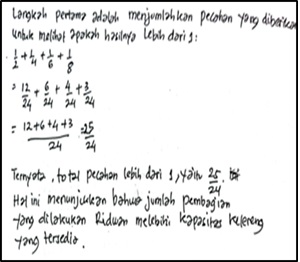 Langkah pertama adalah menjumlahkan pecahan yang diberikan
untuk melihat apakah hasilnya lebih dari 1:
1/2 + 1/4 + 1/6 + 1/8
= 12/24 + 6/24 + 4/24 + 3/24
= 12+6+4+3/24 = 25/24
Ternyata, total pecahan lebih dari 1, yaitu 25/24.
Hal ini menunjukkan bahwa jumlah pembagian
yang dilakukan Ridwan melebihi kapasitas kelereng
yang tersedia.